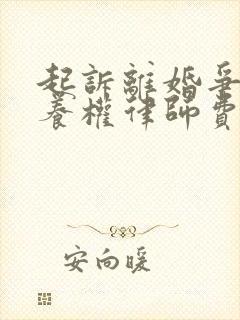 起訴離婚爭
養權律師費
安向暖